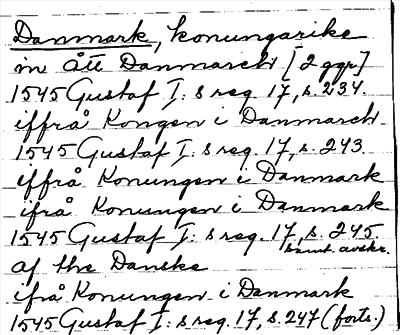 Danmark, konungarike
in Ått Danmarch [2 ggr]
1545 Gustaf I: s reg. 17, s. 234.
iffrå Kongen i Danmarch
1545 Gustaf I: s reg. 17, s. 243.
iffrå Konungen i Danmark
ifrå Konungen i Danmark
1545 Gustaf I: s reg. 17, s. 245
samt. avskr.
af the Danske
ifrå Konungen i Danmark
1545 Gustaf I: s reg. 17, s. 247 (forts.)